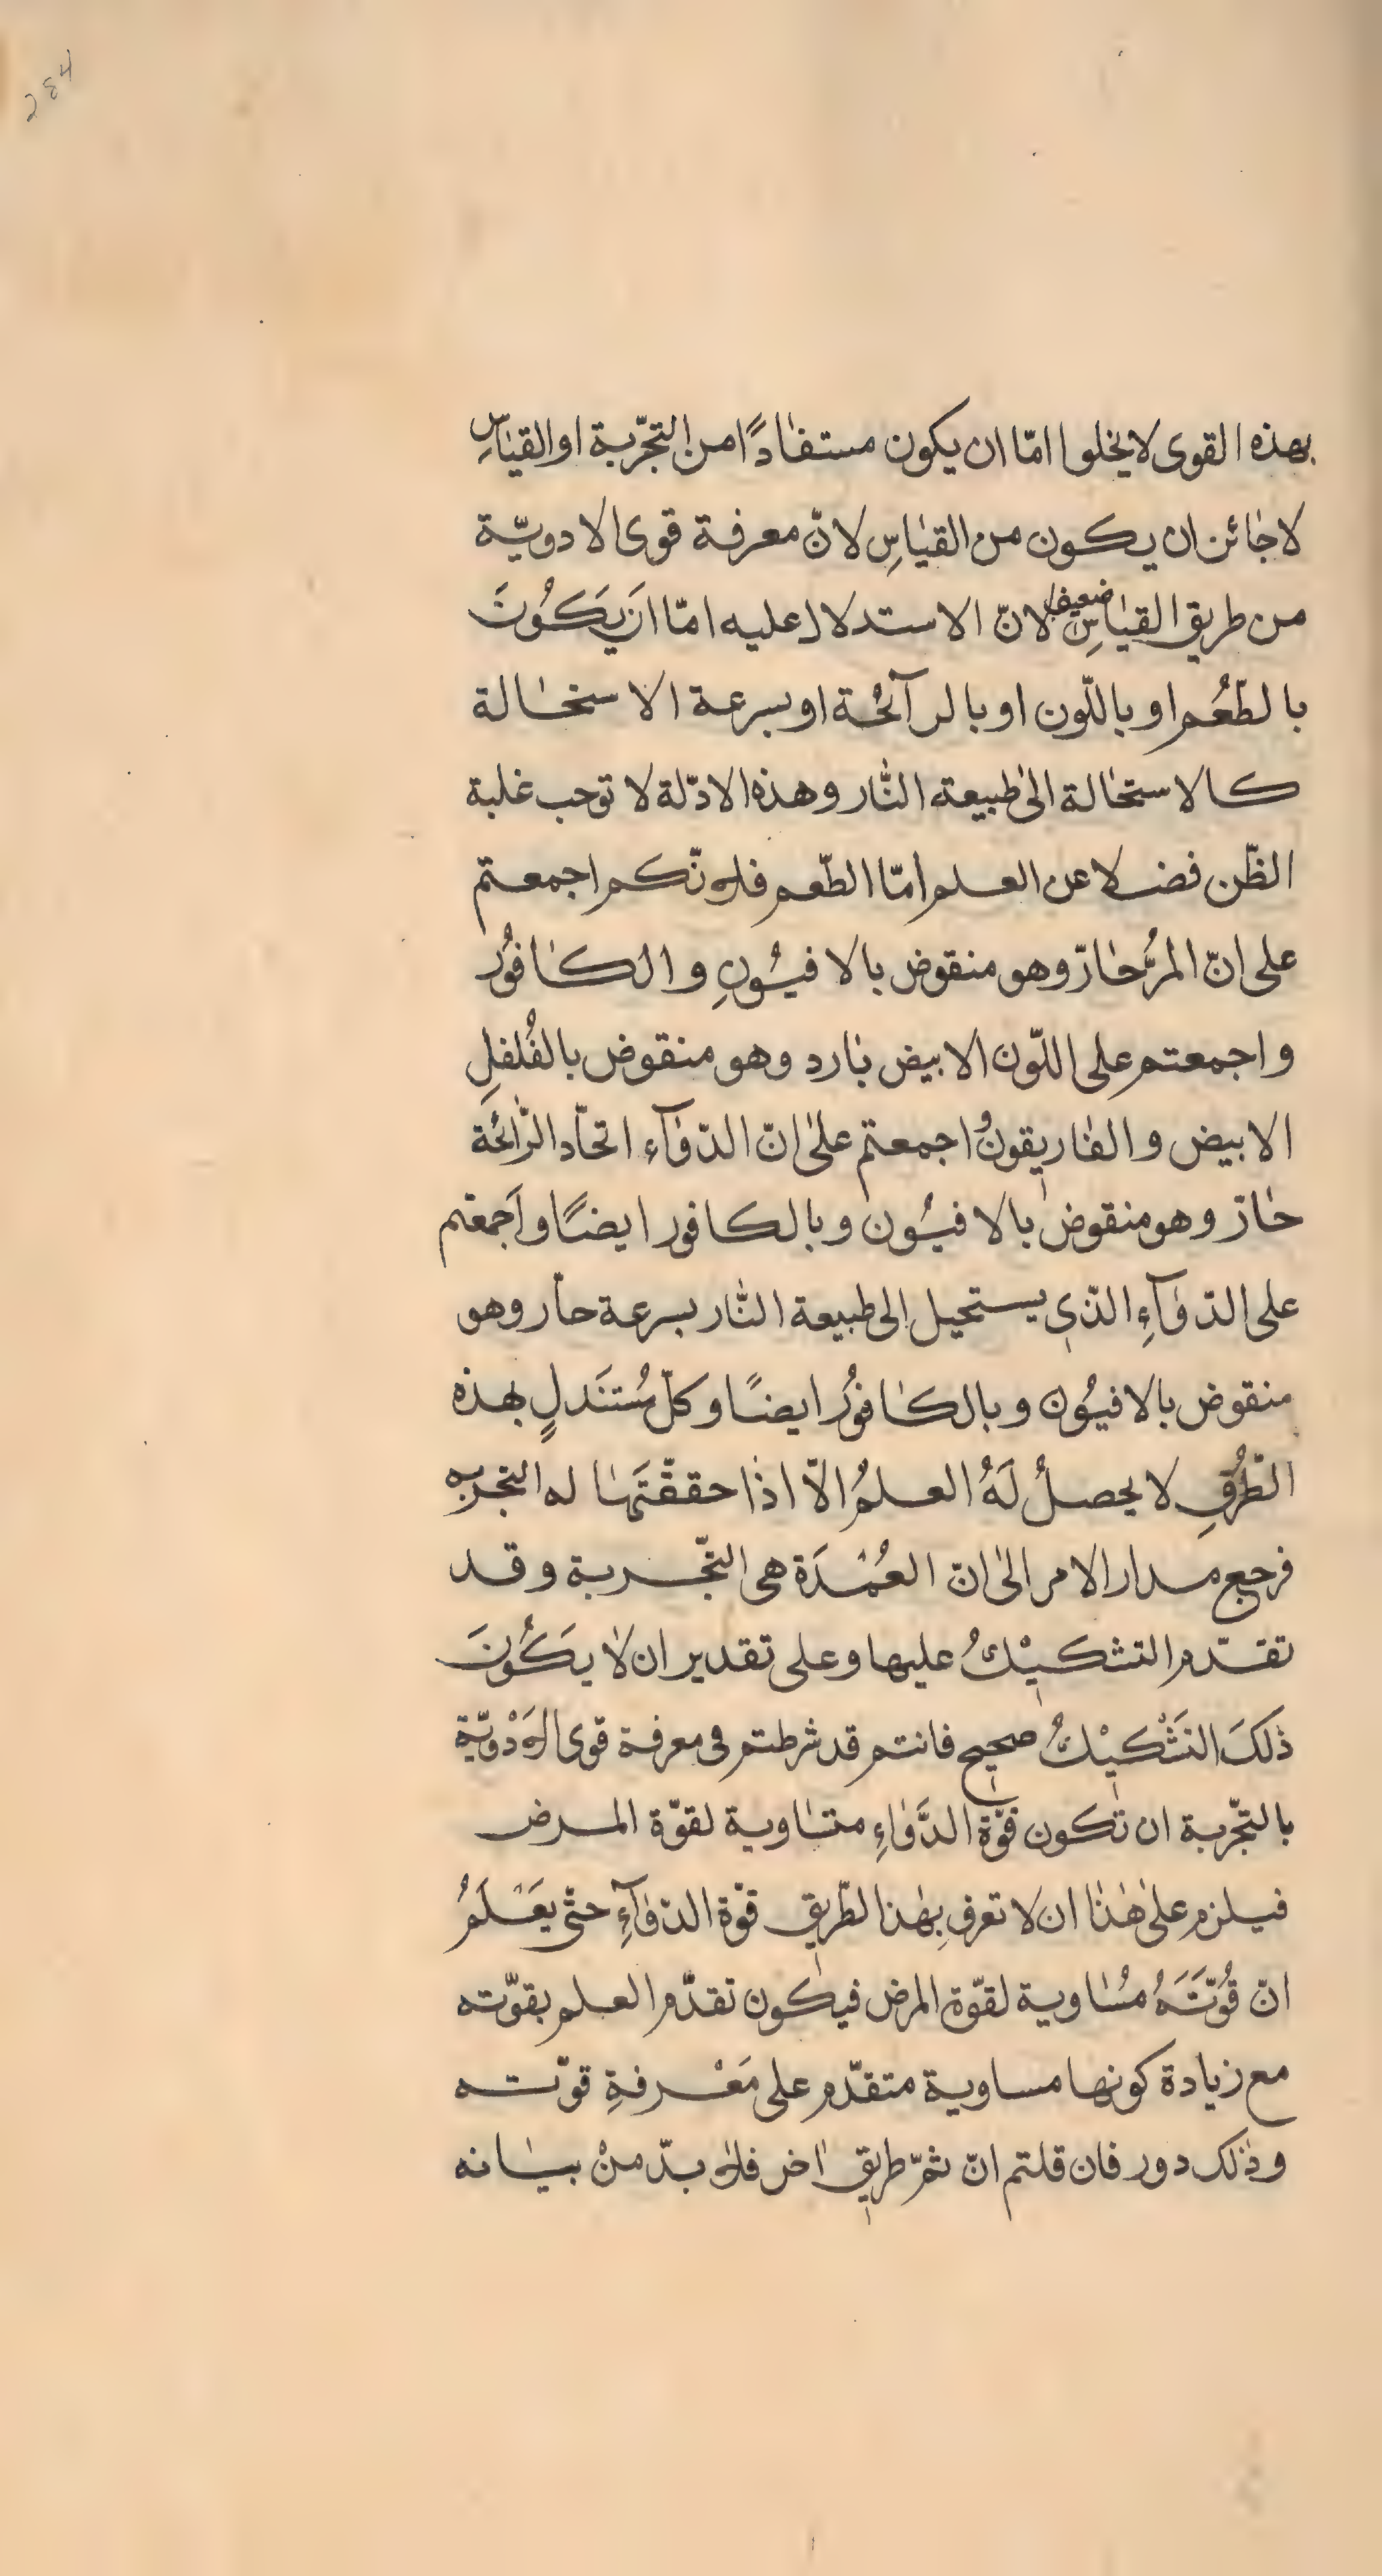 284
بهذه القوى لا يخلوا امّا ان يكون مستفادًا من التجّربة او القياسِ
لا جائز ان يكون من القياسِ لانّ معرفة قوى الادويّة
من طريق القياسِ ضعيف لانّ الاستدلال عليه امّا اَن يَكُونَ
بالطّعُم او باللّون او بالرآئحُة او بسرعة الاستحالة
كالاستحالة الى طبيعة النّار وهذه الادّلة لا توجب غلبة
الظّن فضلا عن العلم امّا الطّعم فلانّكم اجمعتم
على انّ المرُّ حارّ وهو منقوض بالافيُونِ والكافوُر
واجمعتم على اللّون الابيض بارد وهو منقوض بالفُلفلِ
الابيض والغاريقونُ واجمعتم على انّ الدّوآء اتحّاد الرّائحُة
حارّ وهو منقوض بالافيُون وبالكافور ايضًا واَجمعتم
على الدّوآءِ الذّى يستحيل الى طبيعة النّار بسرعة حاّر وهو
منقوض بالافيُون وبالكافوُر ايضًا وكلّ مُستَدلٍ بهذه
الطّرُقِ لا يحصلُ لَهُ العلمُ الاّ اذا حققّتَها له التجربه
فرجع مدار الامر الى انّ العُمْدَة هى التجّربة وقد
تقدّم التشكيْكُ عليها وعلى تقدير ان لا يكَُونَ
ذلكَ التَشْكيْكُ صحيح فانتم قد شرطتم فى معرفة قوى الاَدْويّة
بالتجّربة ان تكون قوّة الدَّواءِ متساوية لقوّة المرض
فيلزم على هذا ان لا تعرفِ بهذا الطّريق قوّة الدّوآءِ حتّى يَعْلَمُ
انّ قُوّتَهَُ مُساوية لقوّة المرض فيكون تقدّم العلم بقوّته
مع زيادة كونها مساوية متقدّم على مَعْرفةِ قوّته
وذلك دور فان قلتم انّ ثمّ طريق اخر فلا بدّ منْ بيانه